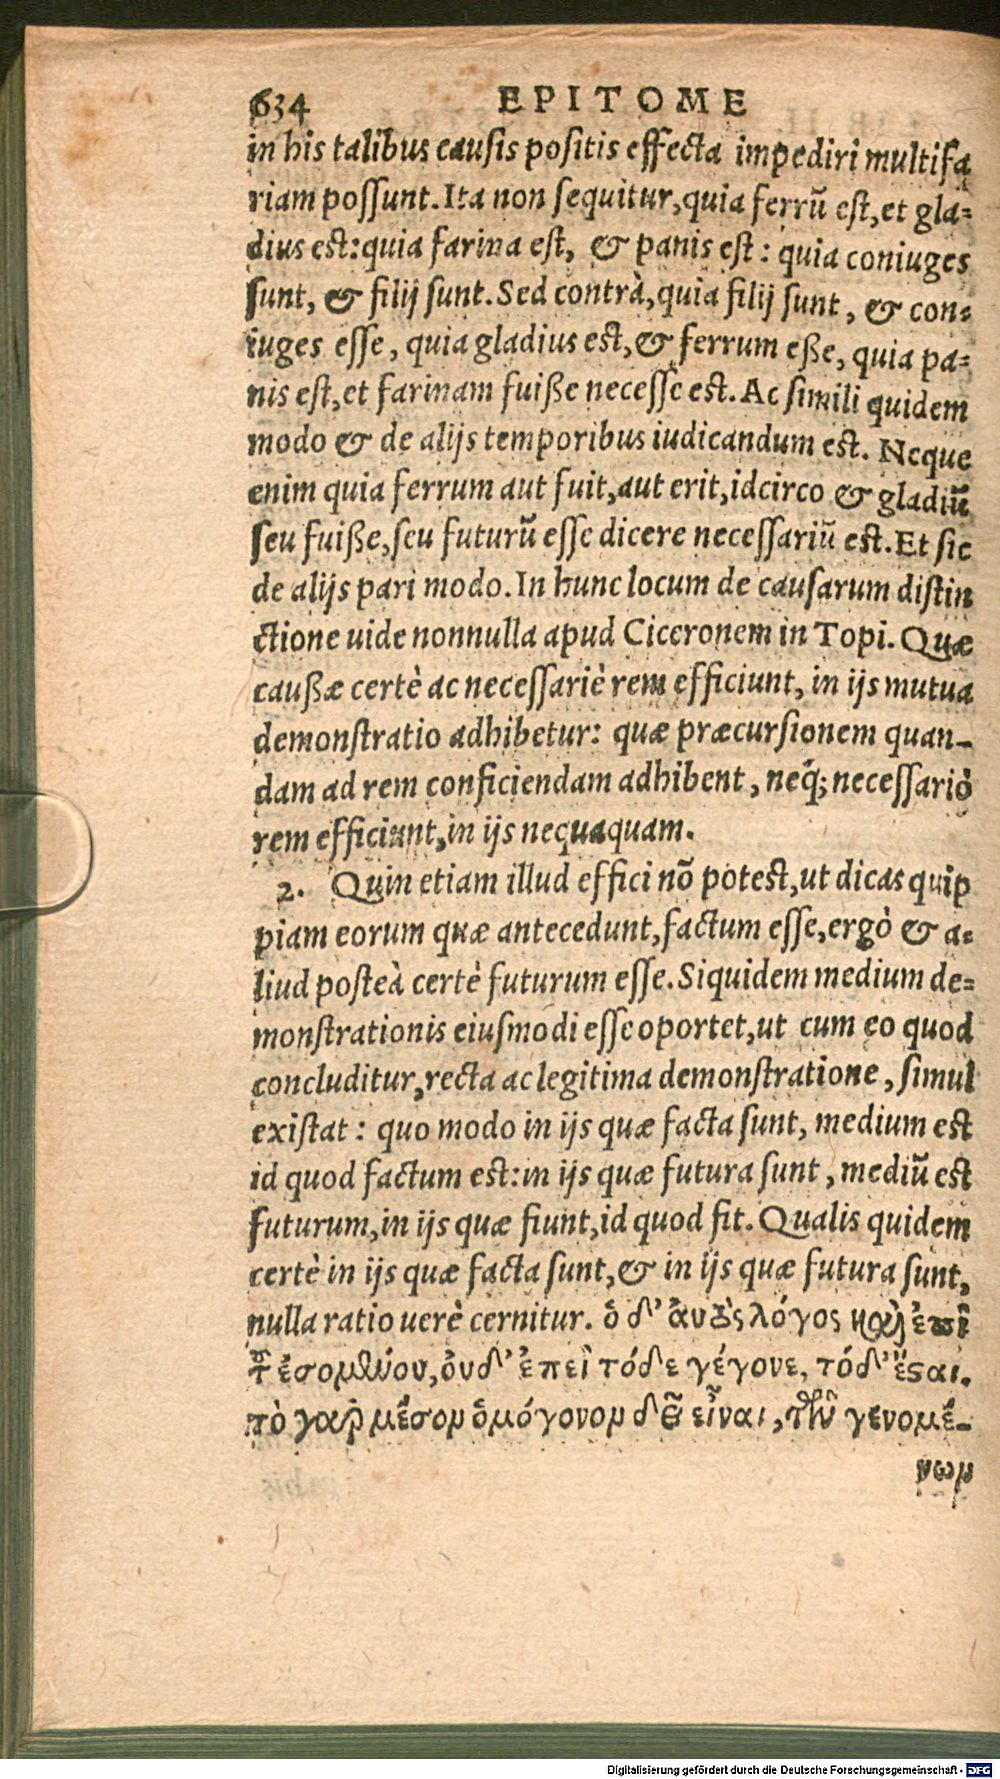 634 EPITOME
in his talibus causis positis effecta impediri multifa
riam possunt. Ita non sequitur, quia ferrū est, et gla-
dius est: quia farina est, & panis est: quia coniuges
sunt, & filij sunt. Sed contrà, quia filij sunt, & con-
iuges esse, quia gladius est, & ferrum eße, quia pa-
nis est, et farinam fuiße necesse est. Ac simili quidem
modo & de alijs temporibus iudicandum est. Neque
enim quia ferrum aut fuit, aut erit, idcirco & gladiū
seu fuiße, seu futurū esse dicere necessariū est. Et sic
de alijs pari modo. In hunc locum de causarum distin
ctione uide nonnulla apud Ciceronem in Topi. Quæ
caußæ certè ac necessariè rem efficiunt, in ijs mutua
demonstratio adhibetur: quæ præcursionem quan-
dam ad rem conficiendam adhibent, neq́; necessariò
rem efficiunt, in ijs nequaquam.
2. Quin etiam illud effici nō potest, ut dicas quip
piam eorum quæ antecedunt, factum esse, ergò & a-
liud posteà certè futurum esse. Siquidem medium de-
monstrationis eiusmodi esse oportet, ut cum eo quod
concluditur, recta ac legitima demonstratione, simul
existat: quo modo in ijs quæ facta sunt, medium est
id quod factum est: in ijs quæ futura sunt, mediū est
futurum, in ijs quæ fiunt, id quod fit. Qualis quidem
certè in ijs quæ facta sunt, & in ijs quæ futura sunt,
nulla ratio uerè cernitur. ὁ δ' αὐτὸς λόγος καὶ ἐπὶ
τ͂ ἐσομένου, οὐδ' ἐπεὶ τόδε γέγονε, τόδ' ἔςαι.
τὸ γὰρ μέσον ὁμόγονον δεῖ εἶναι, τῶν γενομέ-
νων
Digitalisierung gefördert durch die Deutsche Forschungsgemeinschaft - DFG